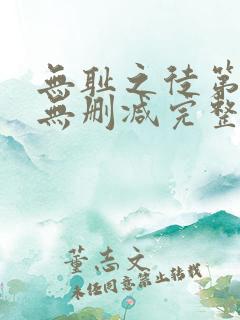 無耻之徒第
無删减完整
董志文
未经同意禁止转载